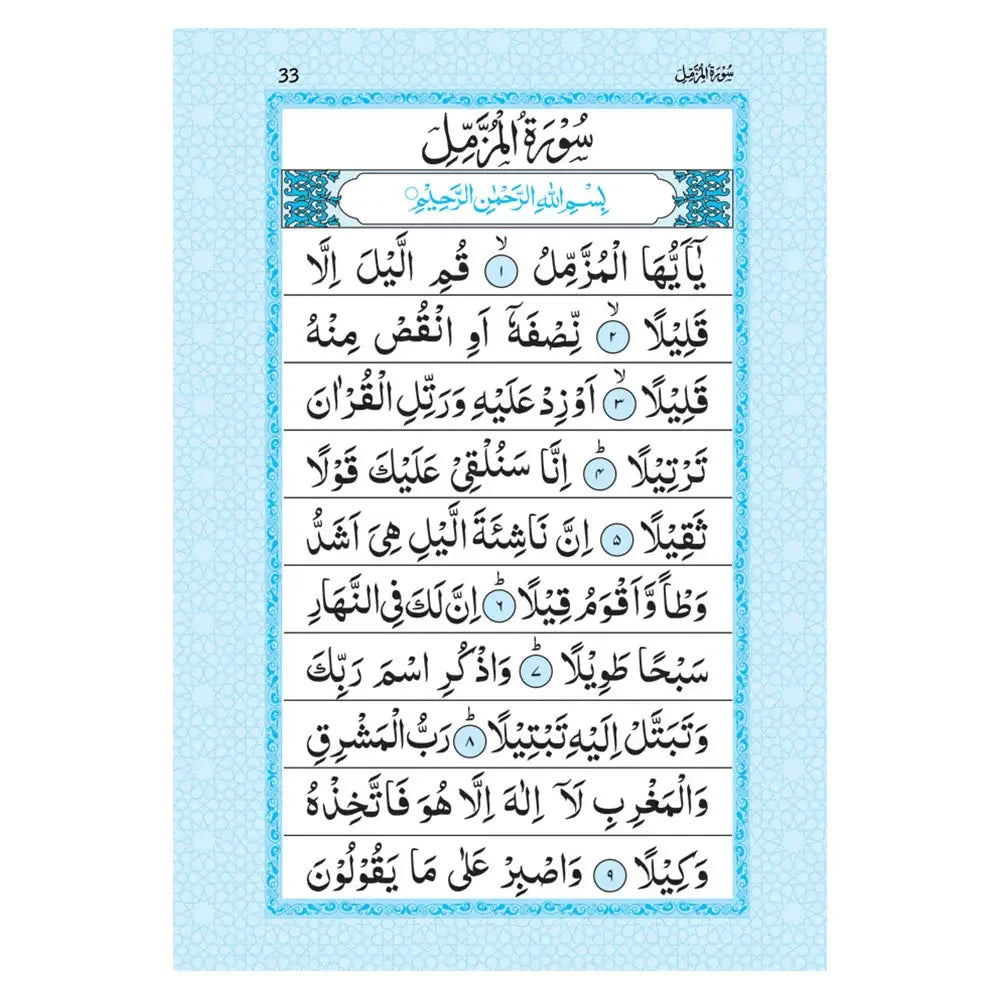 33
سُوْرَةُ الْمُزَّمِّلِ
سُوْرَةُ الْمُزَّمِّلِ
بِسْمِ اللّٰهِ الرَّحْمٰنِ الرَّحِيْمِ
يٰۤاَيُّهَا الْمُزَّمِّلُ ۙ﴿۱﴾ قُمِ الَّيْلَ اِلَّا
قَلِيْلًا ۙ﴿۲﴾ نِّصْفَهٗۤ اَوِ انْقُصْ مِنْهُ
قَلِيْلًا ۙ﴿۳﴾ اَوْزِدْ عَلَيْهِ وَرَتِّلِ الْقُرْاٰنَ
تَرْتِيْلًا ؕ﴿۴﴾ اِنَّا سَنُلْقِيْ عَلَيْكَ قَوْلًا
ثَقِيْلًا ﴿۵﴾ اِنَّ نَاشِئَةَ الَّيْلِ هِيَ اَشَدُّ
وَطْاً وَّاَقْوَمُ قِيْلًا ؕ﴿۶﴾ اِنَّ لَكَ فِي النَّهَارِ
سَبْحًا طَوِيْلًا ؕ﴿۷﴾ وَاذْكُرِ اسْمَ رَبِّكَ
وَتَبَتَّلْ اِلَيْهِ تَبْتِيْلًا ؕ﴿۸﴾ رَبُّ الْمَشْرِقِ
وَالْمَغْرِبِ لَاۤ اِلٰهَ اِلَّا هُوَ فَاتَّخِذْهُ
وَكِيْلًا ﴿۹﴾ وَاصْبِرْ عَلٰى مَا يَقُوْلُوْنَ